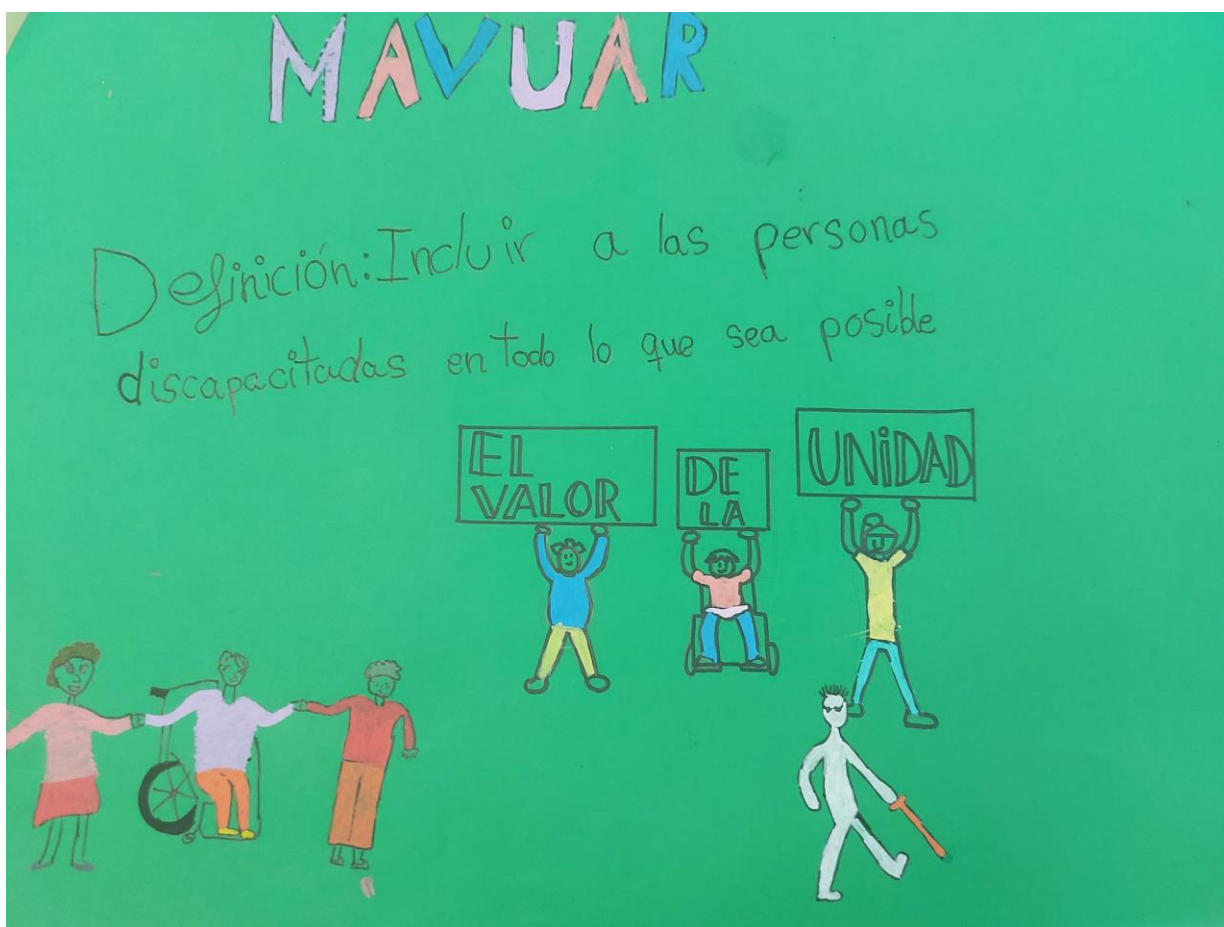 MAVUAR
Definición: Incluir a las personas
discapacitadas en todo lo que sea posible
EL
VALOR
DE
LA
UNiDAD